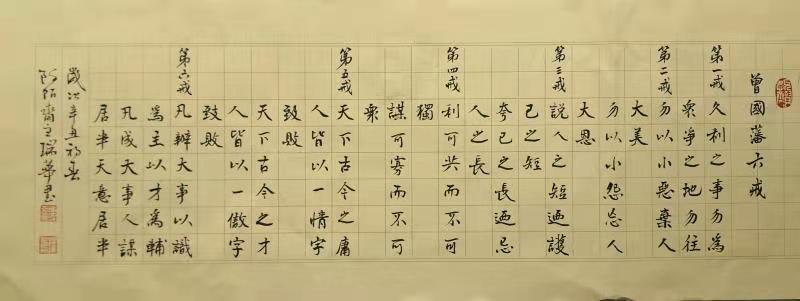 曾國藩六戒
第一戒
久利之事勿為
衆淨之地勿往
第二戒
勿以小惡棄人
大美
勿以小怨忘人
大恩
第三戒
說人之短迺護
己之短
夸己之長迺忌
人之長
第四戒
利可共而不可
獨
謀可寡而不可
衆
第五戒
天下古今之庸
人皆以一惰字
致敗
天下古今之才
人皆以一傲字
致敗
第六戒
凡辦大事以識
為主以才為輔
凡成大事人謀
居半天意居半
歲次辛丑初春
齋主瑞華書